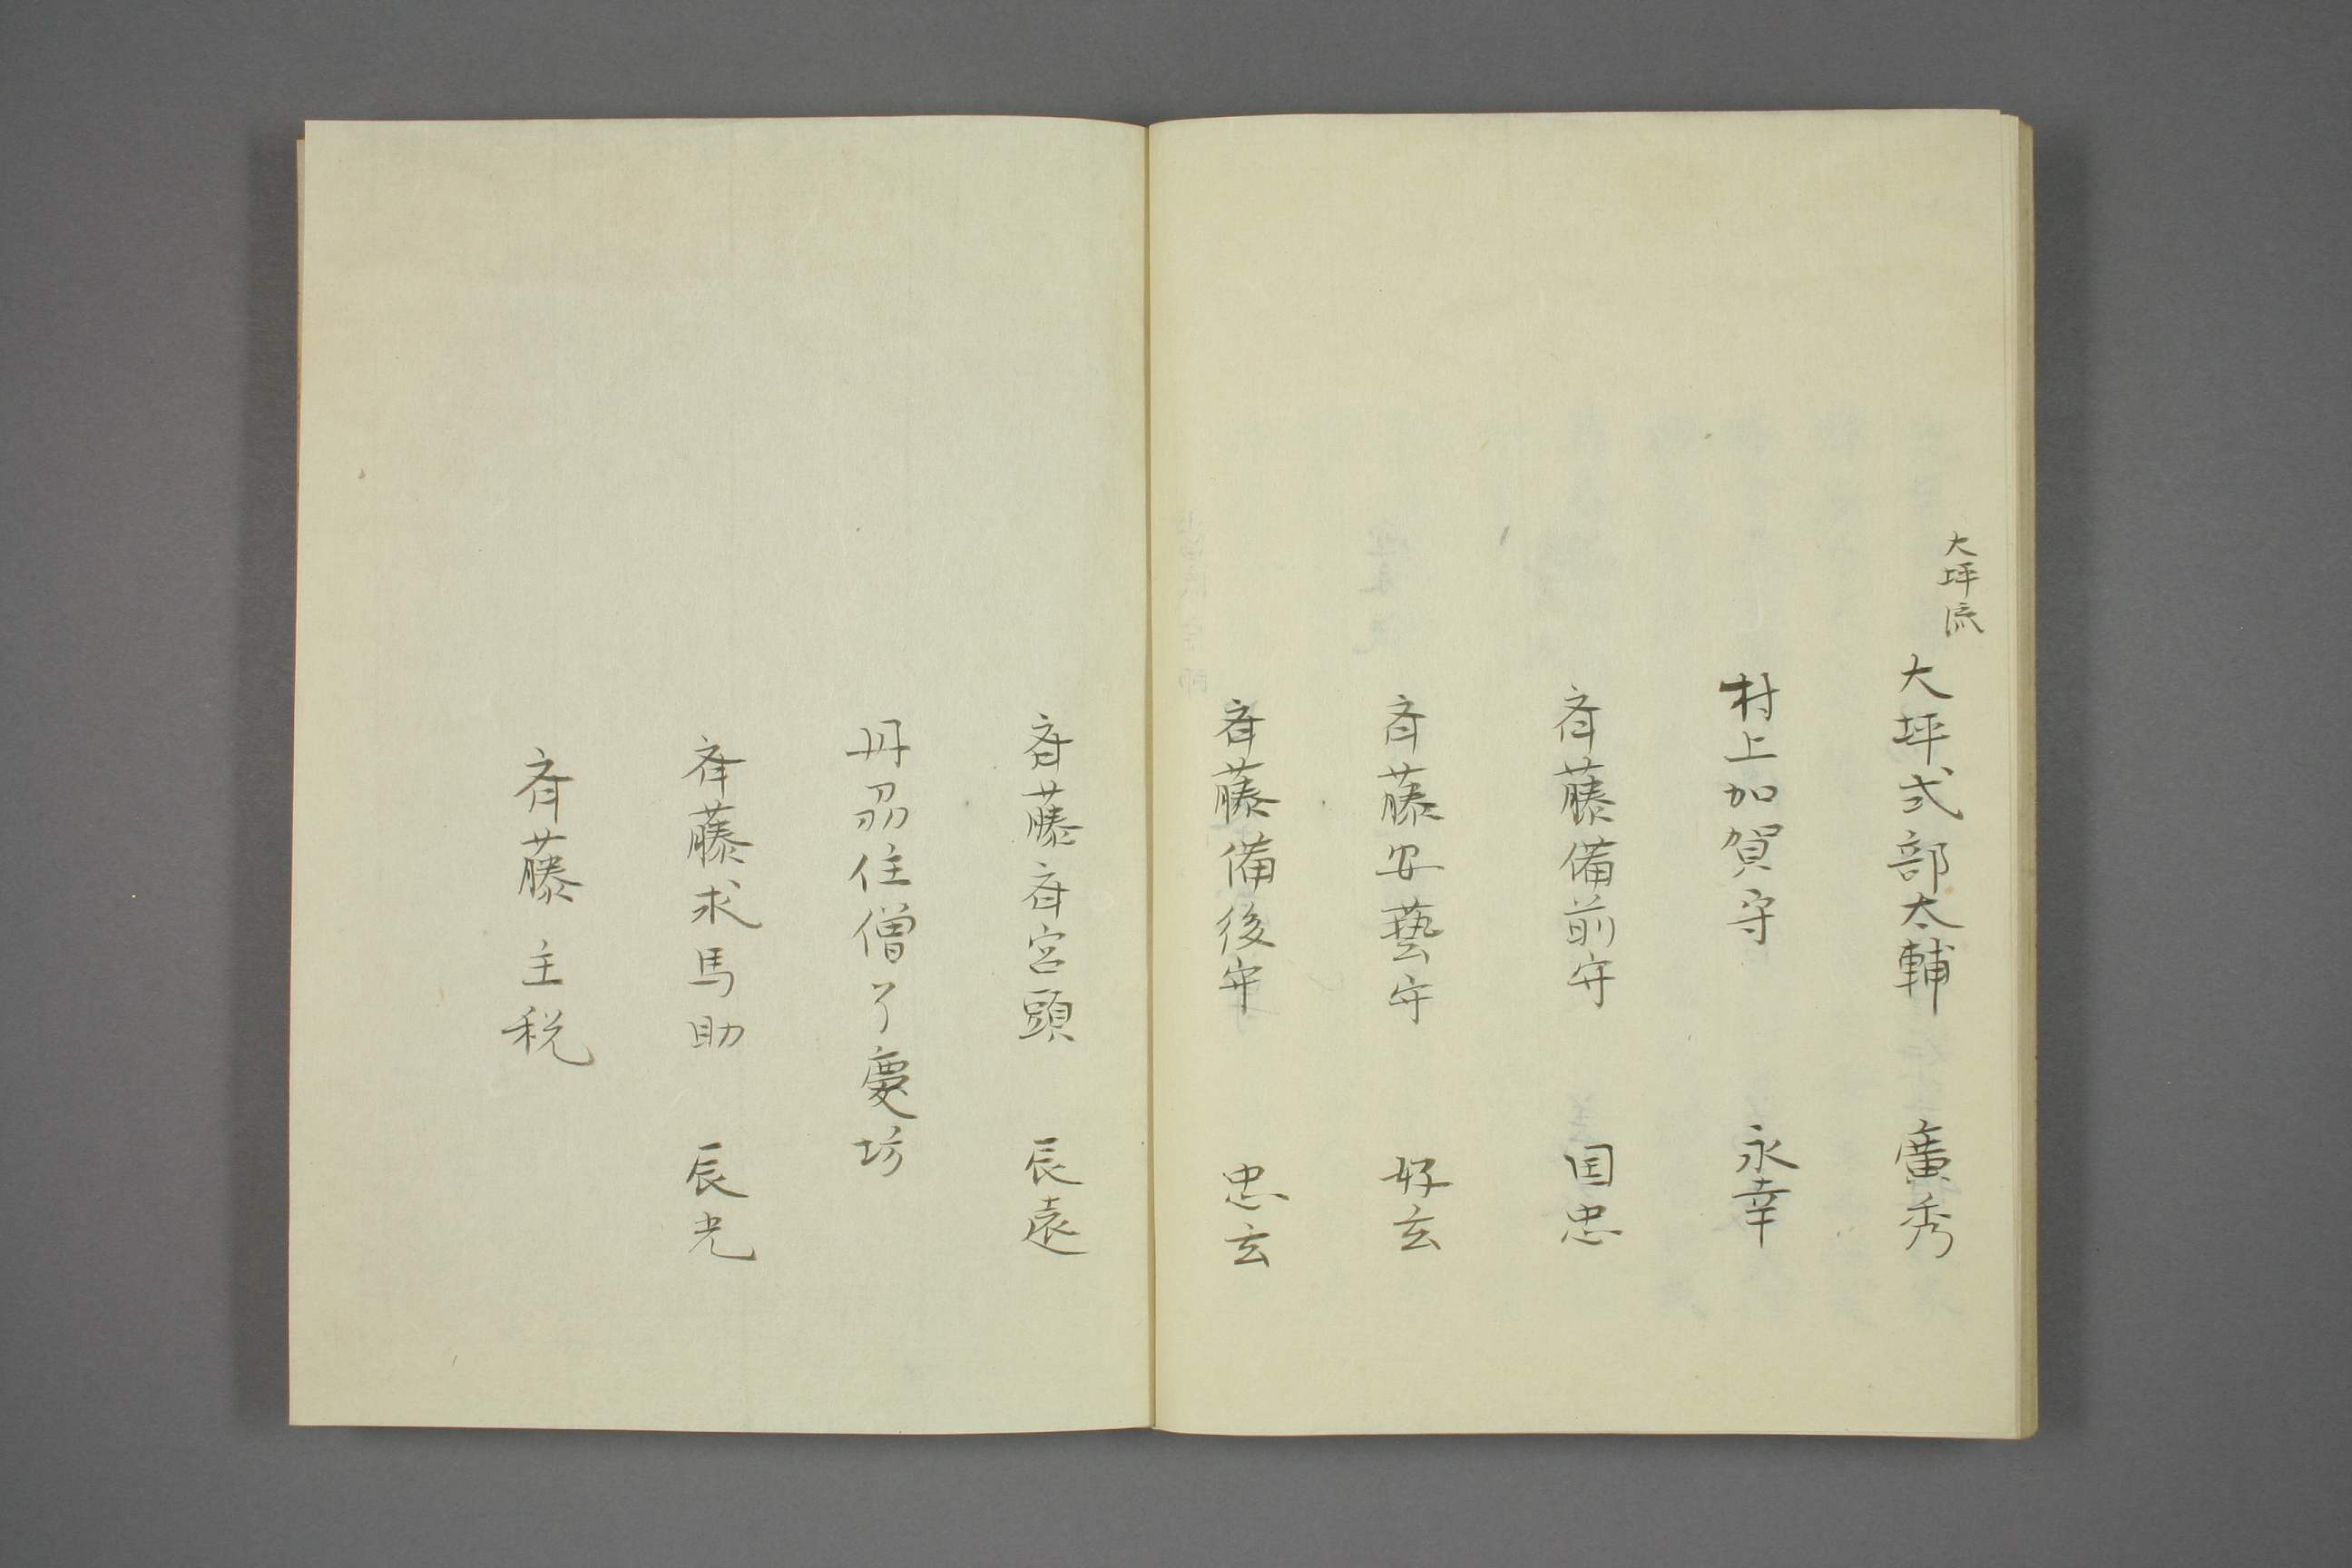 大坪流
大坪式部太輔 廣秀
村上加賀守 永幸
斉藤備前守 国忠
斉藤安藝守 好玄
斉藤備後守 忠玄
斉藤斉宮頭 辰遠
丹刕住僧了慶坊
斉藤求馬助 辰光
斉藤主税